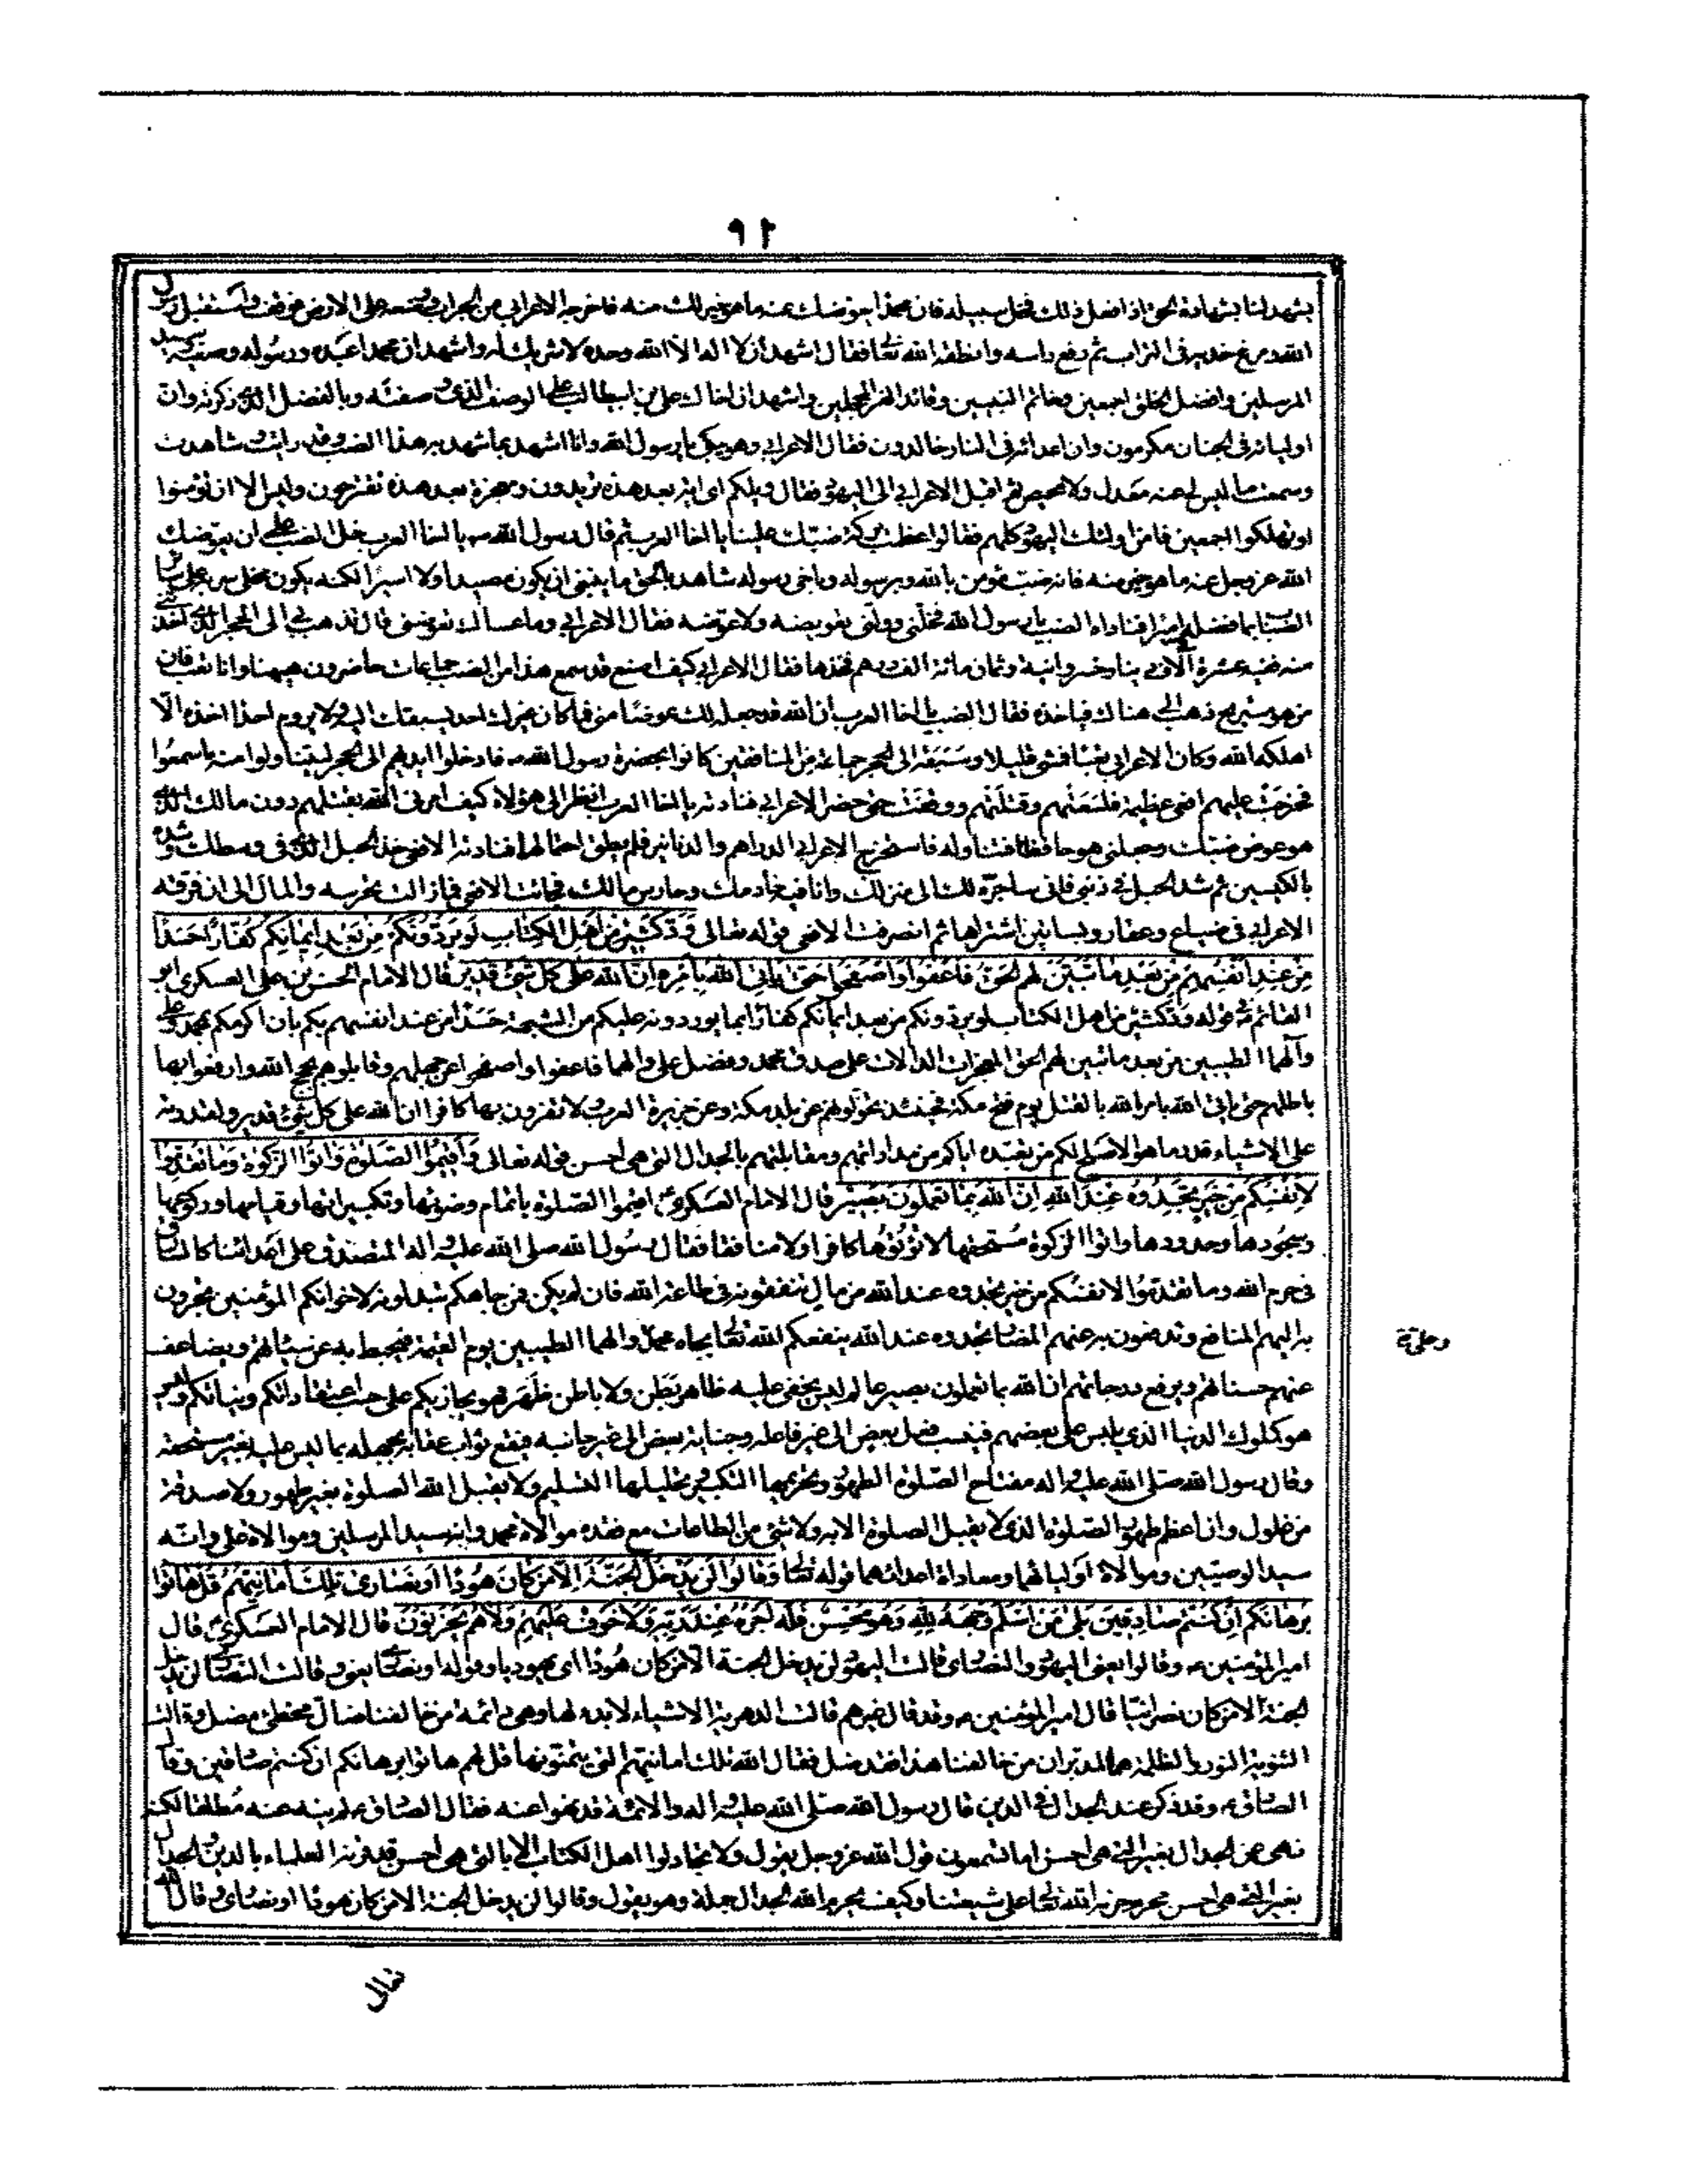 ٩٢
يشهد لنا بشهادة الحق اذا فعل ذلك فخل سبيله فان محمدا يعوضك عنه ما هو خير لك منه فاخرجه الاعرابي من الجراب ووضعه على الارض فوقف واستقبل رسول
الله ومرغ خديه في التراب ثم رفع راسه وانطقه الله تعالى فقال اشهد ان لا اله الا الله وحده لا شريك له واشهد ان محمدا عبده ورسوله وصفيه سيد
المرسلين وافضل الخلق اجمعين وخاتم النبيين وقائد الغر المحجلين واشهد ان اخاك علي بن ابيطالب على الوصف الذي وصفته وبالفضل الذي ذكرته وان
اوليائه في الجنان مكرمون وان اعدائه في النار خالدون فقال الاعرابي وهو يبكي يا رسول الله وانا اشهد بما شهد به هذا الضب وقد رايت وشاهدت
وسمعت ما ليس لي عنه معدل ولا محيص ثم اقبل الاعرابي الى اليهود فقال ويلكم اي اية بعد هذه تريدون ومعجزة بعد هذه تقترحون وليس الا ان تؤمنوا
او تهلكوا اجمعين فامن اولئك اليهود كلهم فقالوا عظمت بركة ضبك علينا يا اخا العرب ثم قال رسول الله ص يا اخا العرب خل الضب على ان يعوضك
الله عز وجل عنه ما هو خير منه فانه ضب مؤمن بالله وبرسوله وباخي رسوله شاهد بالحق ما ينبغي ان يكون مصيدا ولا اسيرا لكنه يكون مخلى سربه على سائر
الضباب بما فضله الله اميرا فناداه الضب يا رسول الله فخلني وولني تعويضه لاعوضه فقال الاعرابي وما عساك تعوضني قال تذهب الى الجحر الذي اخذتني
منه ففيه عشرة آلاف دينار خسروانية وثمان مائة الف درهم فخذها فقال الاعرابي كيف اصنع قد سمع هذا من الضب جماعات حاضرون هيهنا وانا تعب فان
من هو مستريح يذهب الى هناك فياخذه فقال الضب يا اخا العرب ان الله قد جعله لك عوضا مني فما كان ليترك احدا يسبقك اليه ولا يروم احدا اخذه الا
اهلكه الله وكان الاعرابي تعبا فمشى قليلا وسبقه الى الجحر جماعة من المنافقين كانوا بحضرة رسول الله ص فادخلوا ايديهم الى الجحر ليتناولوا منه ما سمعوا
فخرجت عليهم افعى عظيمة فلسعتهم وقتلتهم ووقفت حتى حضر الاعرابي فنادته يا اخا العرب انظر الى هؤلاء كيف امرني الله بقتلهم دون مالك الذي
هو عوض ضبك وجعلني هو حافظا فتناوله فاستخرج الاعرابي الدراهم والدنانير فلم يطق احتمالها فنادته الافعى خذ الحبل الذي في وسطك وشده
بالكيسين ثم شد الحبل في ذنبي فاني ساجره لك الى منزلك وانا فيه خادمك وحارس مالك فجائت الافعى فما زالت تحرسه والمال الى ان فرقه
الاعرابي في ضياع وعقار وبساتين اشتراها ثم انصرفت الافعى قوله تعالى وَدَّ كَثِيرٌ مِنْ اَهْلِ الْكِتَابِ لَوْ يَرُدُّونَكُمْ مِنْ بَعْدِ اِيمَانِكُمْ كُفَّاراً حَسَداً
مِنْ عِنْدِ اَنْفُسِهِمْ مِنْ بَعْدِ مَا تَبَيَّنَ لَهُمُ الْحَقُّ فَاعْفُوا وَاصْفَحُوا حَتَّى يَأْتِيَ اللهُ بِأَمْرِهِ اِنَّ اللهَ عَلَى كُلِّ شَيْءٍ قَدِيرٌ قال الامام الحسن بن علي العسكري ابو
القائم في قوله ود كثير من اهل الكتاب لو يردونكم من بعد ايمانكم كفارا بما يوردونه عليكم من الشبهة حسدا من عند انفسهم بكم بان اكرمكم بمحمد وعلي
وآلهما الطيبين من بعد ما تبين لهم الحق المعجزات الدالات على صدق محمد وفضل علي وآلهما فاعفوا واصفحوا عن جهلهم وقابلوهم بحجج الله وادفعوا بها
باطلهم حتى ياتي الله بامر الله بالقتل يوم فتح مكة فحينئذ تحولونهم عن بلد مكة وعن جزيرة العرب لا تقرون بها كافرا ان الله على كل شيء قدير ولقدرته
على الاشياء قدر ما هو الاصلح لكم من تعبده اياكم من مداراتهم ومقابلتهم بالجدال التي هي احسن قوله تعالى وَاَقِيمُوا الصَّلوةَ وَآتُوا الزَّكوةَ وَمَا تُقَدِّمُوا
لِاَنْفُسِكُمْ مِنْ خَيْرٍ تَجِدُوهُ عِنْدَ اللهِ اِنَّ اللهَ بِمَا تَعْمَلُونَ بَصِيرٌ قال الامام العسكري اقيموا الصلوة باتمام وضوئها وتكبيراتها وقيامها وركوعها
وسجودها وحدودها واتوا الزكوة مستحقها لا تؤتوها كافرا ولا منافقا فقال رسول الله صلى الله عليه واله المتصدق على اعدائنا كالسارق
في حرم الله وما تقدموا لانفسكم من خير تجدوه عند الله من مال تنفقونه في طاعة الله فان لم يكن فمن جاهكم تبذلونه لاخوانكم المؤمنين تجرون
به اليهم المنافع وتدفعون به عنهم المضار تجدوه عند الله ينفعكم الله تعالى بجاه محمد وآلهما الطيبين يوم القيمة فيحبط به عن سيئاتهم ويضاعف
وعلي ة
عنهم حسناتهم ويرفع درجاتهم ان الله بما تعملون بصير عالم ليس يخفى عليه ظاهر بطن ولا باطن ظهر فهو يجازيكم على حسب اعتقاداتكم ونياتكم وليس
هو كملوك الدنيا الذي يلبس على بعضهم فينسب فعل بعض الى غير فاعله وجناية بعض الى غير جانيه فيقع ثواب عقابه بجهله بما لبس عليه بغير مستحقه
وقال رسول الله صلى الله عليه واله مفتاح الصلوة الطهور وتحريمها التكبير وتحليلها التسليم ولا يقبل الله الصلوة بغير طهور ولا صدقة
من غلول وان اعظم طهور الصلوة الذي لا يقبل الصلوة الا به ولا شيء من الطاعات مع فقده موالاة محمد وانه سيد المرسلين وموالاة علي وانه
سيد الوصيين وموالاة اوليائهما ومعاداة اعدائهما قوله تعالى وَقَالُوا لَنْ يَدْخُلَ الْجَنَّةَ اِلَّا مَنْ كَانَ هُوداً اَوْ نَصَارَى تِلْكَ اَمَانِيُّهُمْ قُلْ هَاتُوا
بُرْهَانَكُمْ اِنْ كُنْتُمْ صَادِقِينَ بَلَى مَنْ اَسْلَمَ وَجْهَهُ لِلهِ وَهُوَ مُحْسِنٌ فَلَهُ اَجْرُهُ عِنْدَ رَبِّهِ وَلَا خَوْفٌ عَلَيْهِمْ وَلَا هُمْ يَحْزَنُونَ قال الامام العسكري قال
امير المؤمنين ع وقالوا يعني اليهود والنصارى قالت اليهود لن يدخل الجنة الا من كان هودا اي يهوديا وقوله او نصارى يعني وقالت النصارى لن يدخل
الجنة الا من كان نصرانيا قال امير المؤمنين ع وقد قال غيرهم قالت الدهرية الاشياء لا بدء لها وهي دائمة من خالفنا ضال مخطئ مضل وقالت
الثنوية النور والظلمة هما المدبران من خالفنا هذا فقد ضل فقال الله تلك امانيهم التي يتمنونها قل لهم هاتوا برهانكم ان كنتم صادقين وقال
الصادق ع وقد ذكر عنده الجدال في الدين قال رسول الله صلى الله عليه واله والائمة قد نهوا عنه فقال الصادق ع لم ينه عنه مطلقا لكنه
نهى عن الجدال بغير التي هي احسن اما تسمعون قول الله عز وجل يقول ولا تجادلوا اهل الكتاب الا بالتي هي احسن قد قرنه العلماء بالدين والجدال
بغير التي هي احسن محرم حرمه الله تعالى على شيعتنا وكيف يحرم الله الجدال جملة وهو يقول وقالوا لن يدخل الجنة الا من كان هودا او نصارى وقال الله
تعالى